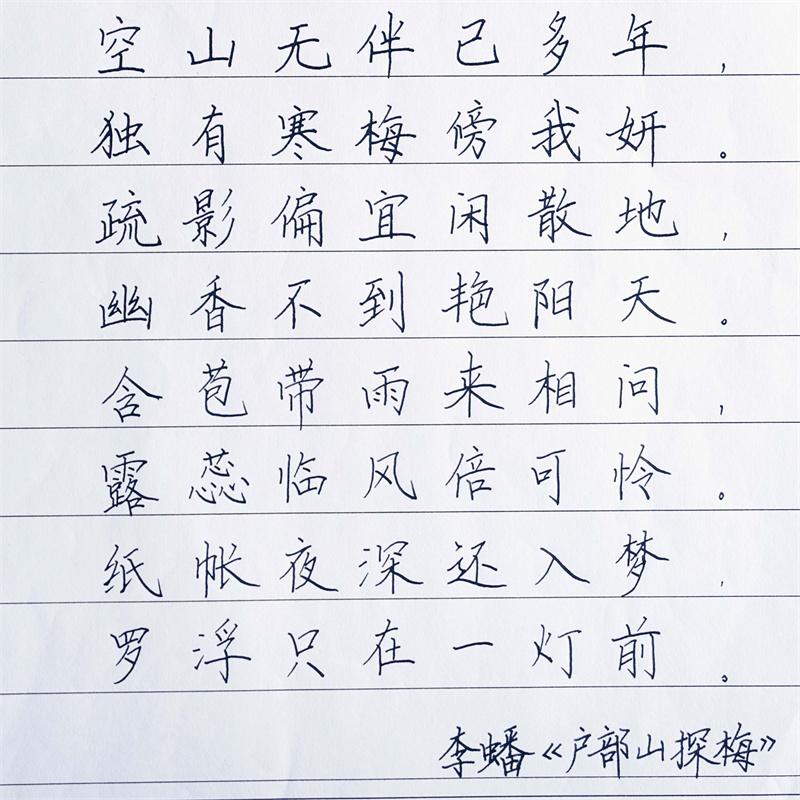 空山无伴已多年，
独有寒梅傍我妍。
疏影偏宜闲散地，
幽香不到艳阳天。
含苞带雨来相问，
露蕊临风倍可怜。
纸帐夜深还入梦，
罗浮只在一灯前。
李蟠《户部山探梅》